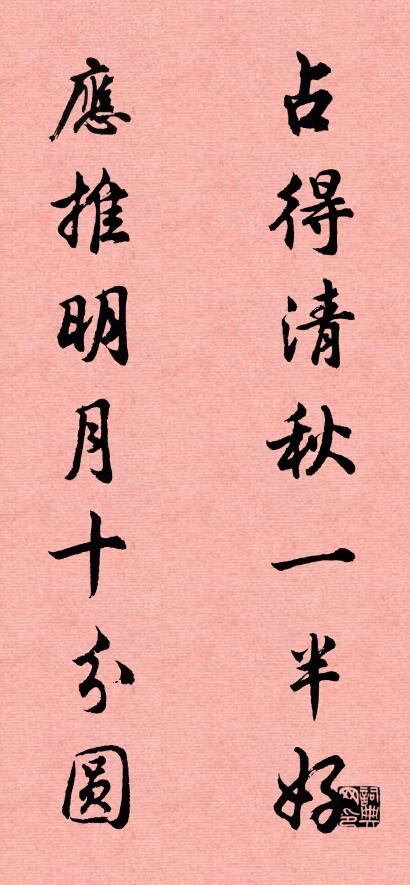 占得清秋一半好
應推明月十分圓
詞典網印